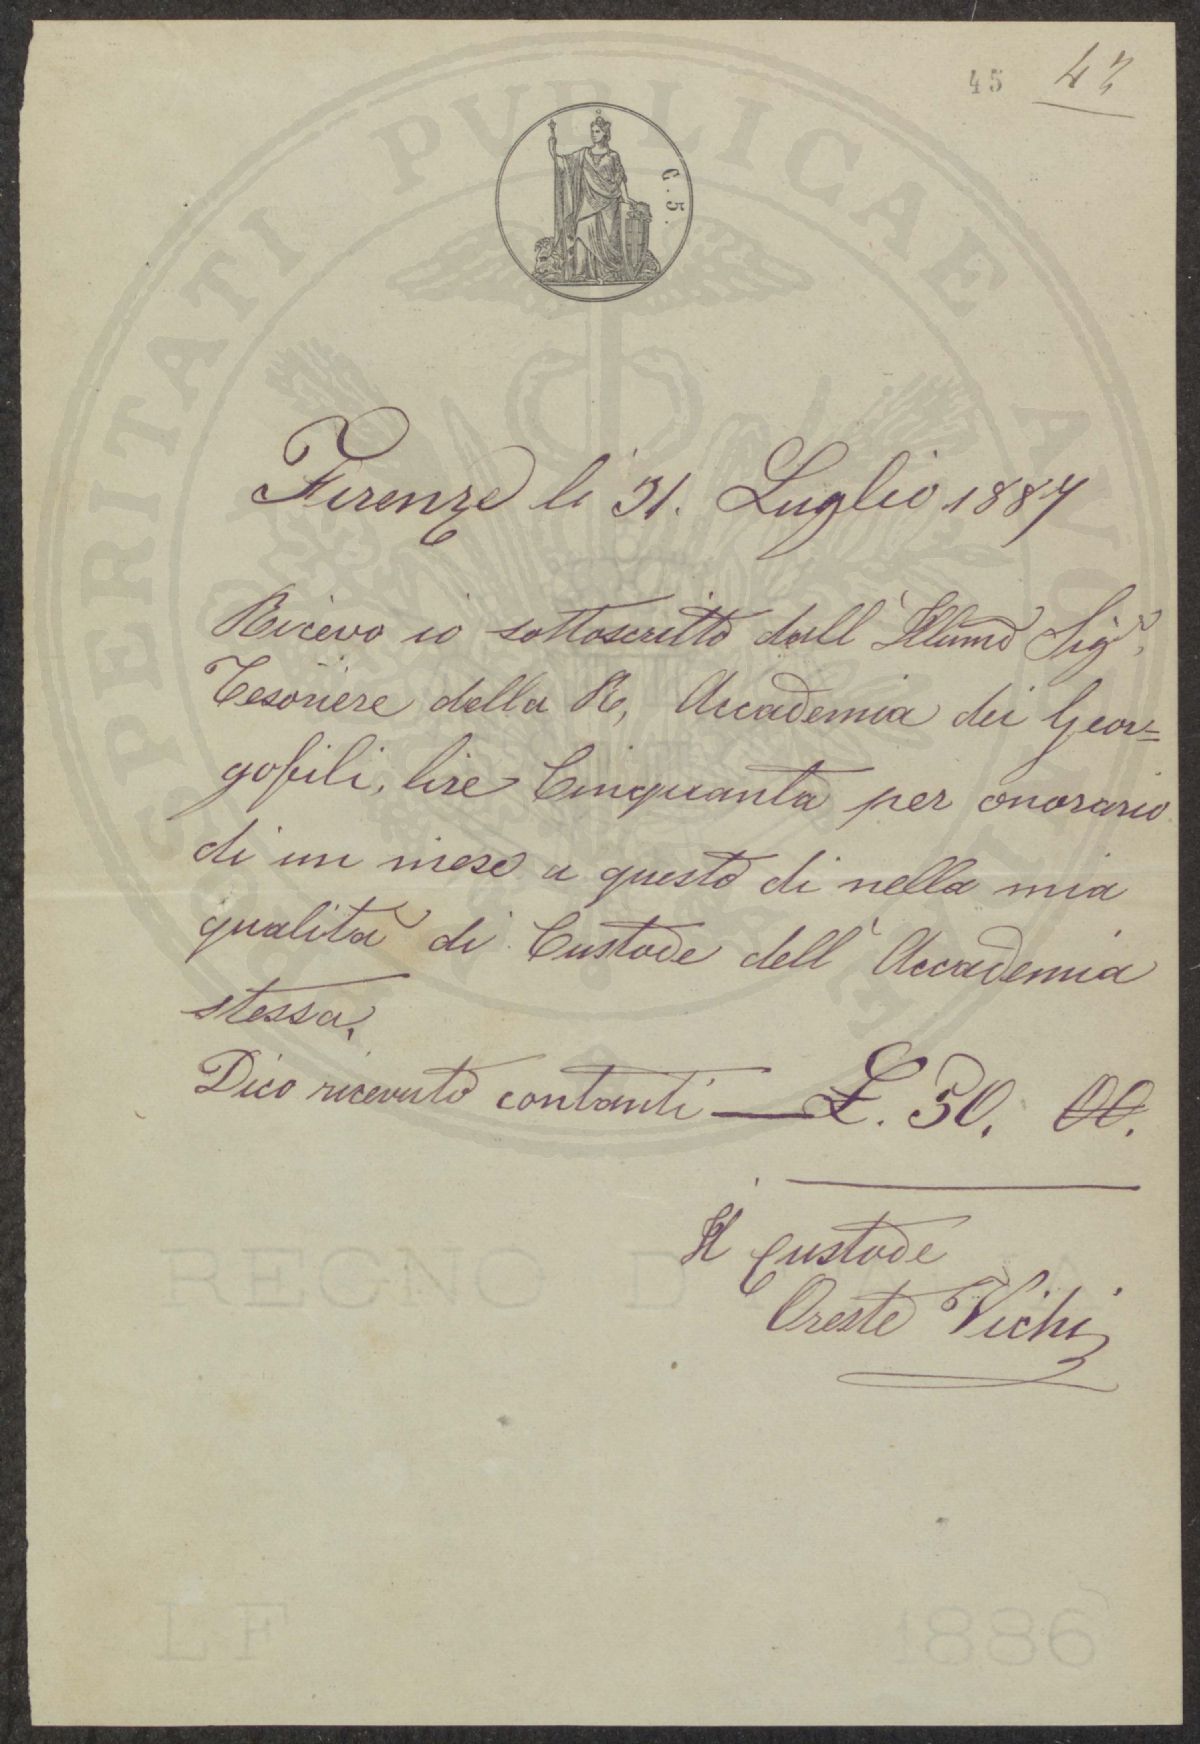 45 42
G. 5.
PROSPERITATI PUBLICAE
Firenze li 31. Luglio 1887
Ricevo io sottoscritto dall' Illumo Sigr.
Tesoriere della R, Accademia dei Geor=
gofili, lire Cinquanta per onorario
di un mese a questo di nella mia
qualità di Custode dell' Accademia
stessa,
Dico ricevuto contanti — £. 50. 00.
Il Custode
Oreste Vichi
REGNO D
LF 1886